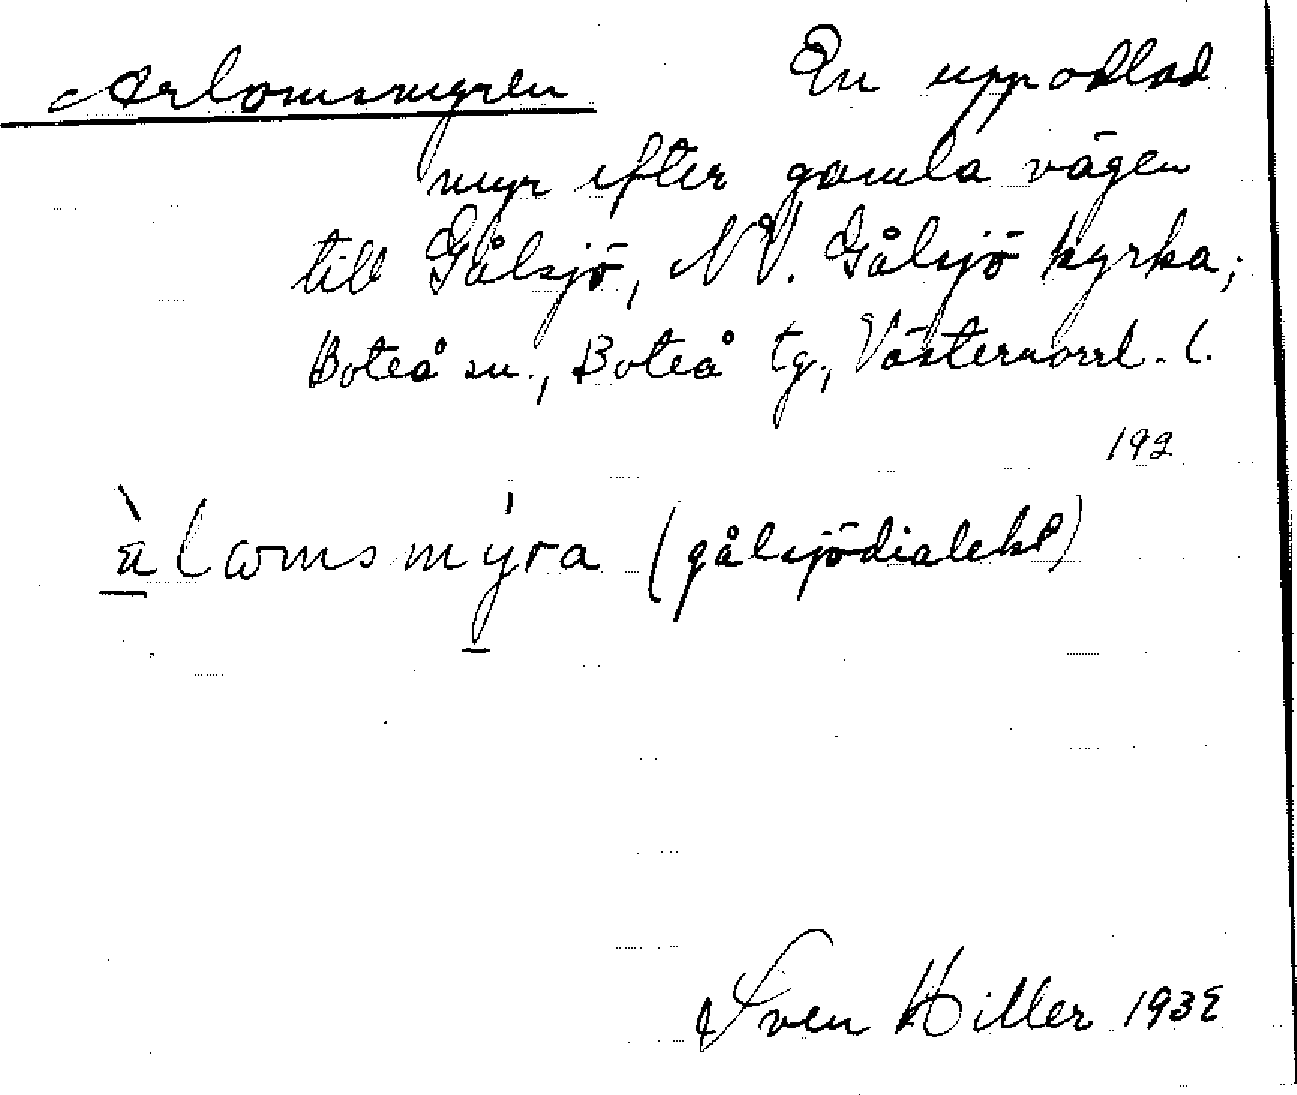 Arlomsmyren En uppodlad
myr efter gamla vägen
till Gålsjö, NV. Gålsjö kyrka;
Boteå sn., Boteå tg., Västernorrl. l.
192
àlomsmýra (gålsjödialekt)
Sven Hiller